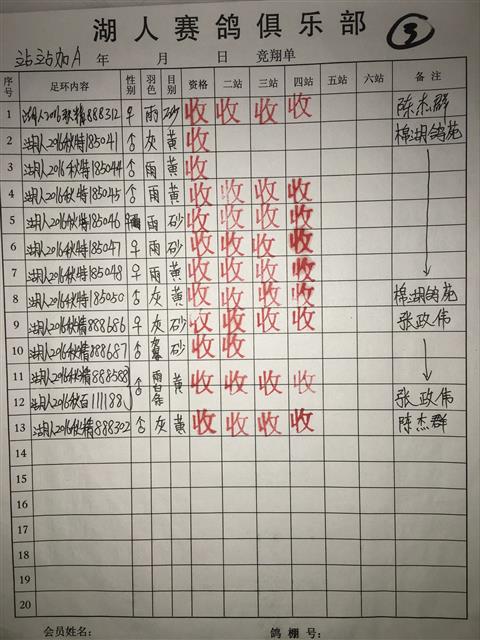 湖人赛鸽俱乐部
③
站站加A 年 月 日 竞翔单
序号 足环内容 性别 羽色 目别 资格 二站 三站 四站 五站 六站 备注
1 湖人2016秋精888312 ♀ 雨 砂 收 收 收 收 陈杰群
2 湖人2016秋特185041 灰 黄 收 棉湖鸽苑
3 湖人2016秋特185044 雨 黄 收
4 湖人2016秋特185045 雨 黄 收 收 收 收
5 湖人2016秋特185046 雨 砂 收 收 收 收
6 湖人2016秋特185047 ♀ 雨 砂 收 收 收 收
7 湖人2016秋特185048 ♀ 雨 黄 收 收 收 收
8 湖人2016秋特185050 灰 黄 收 收 收 收 棉湖鸽苑
9 湖人2016秋精888686 ♀ 灰 砂 收 收 收 收 张政伟
10 湖人2016秋精888687 砂 收 收
11 湖人2016秋精888588 雨白条 黄 收 收 收 收
12 湖人2016秋百111188 张政伟
13 湖人2016秋精888302 灰 黄 收 收 收 收 陈杰群
14
15
16
17
18
19
20
会员姓名： 鸽棚号：